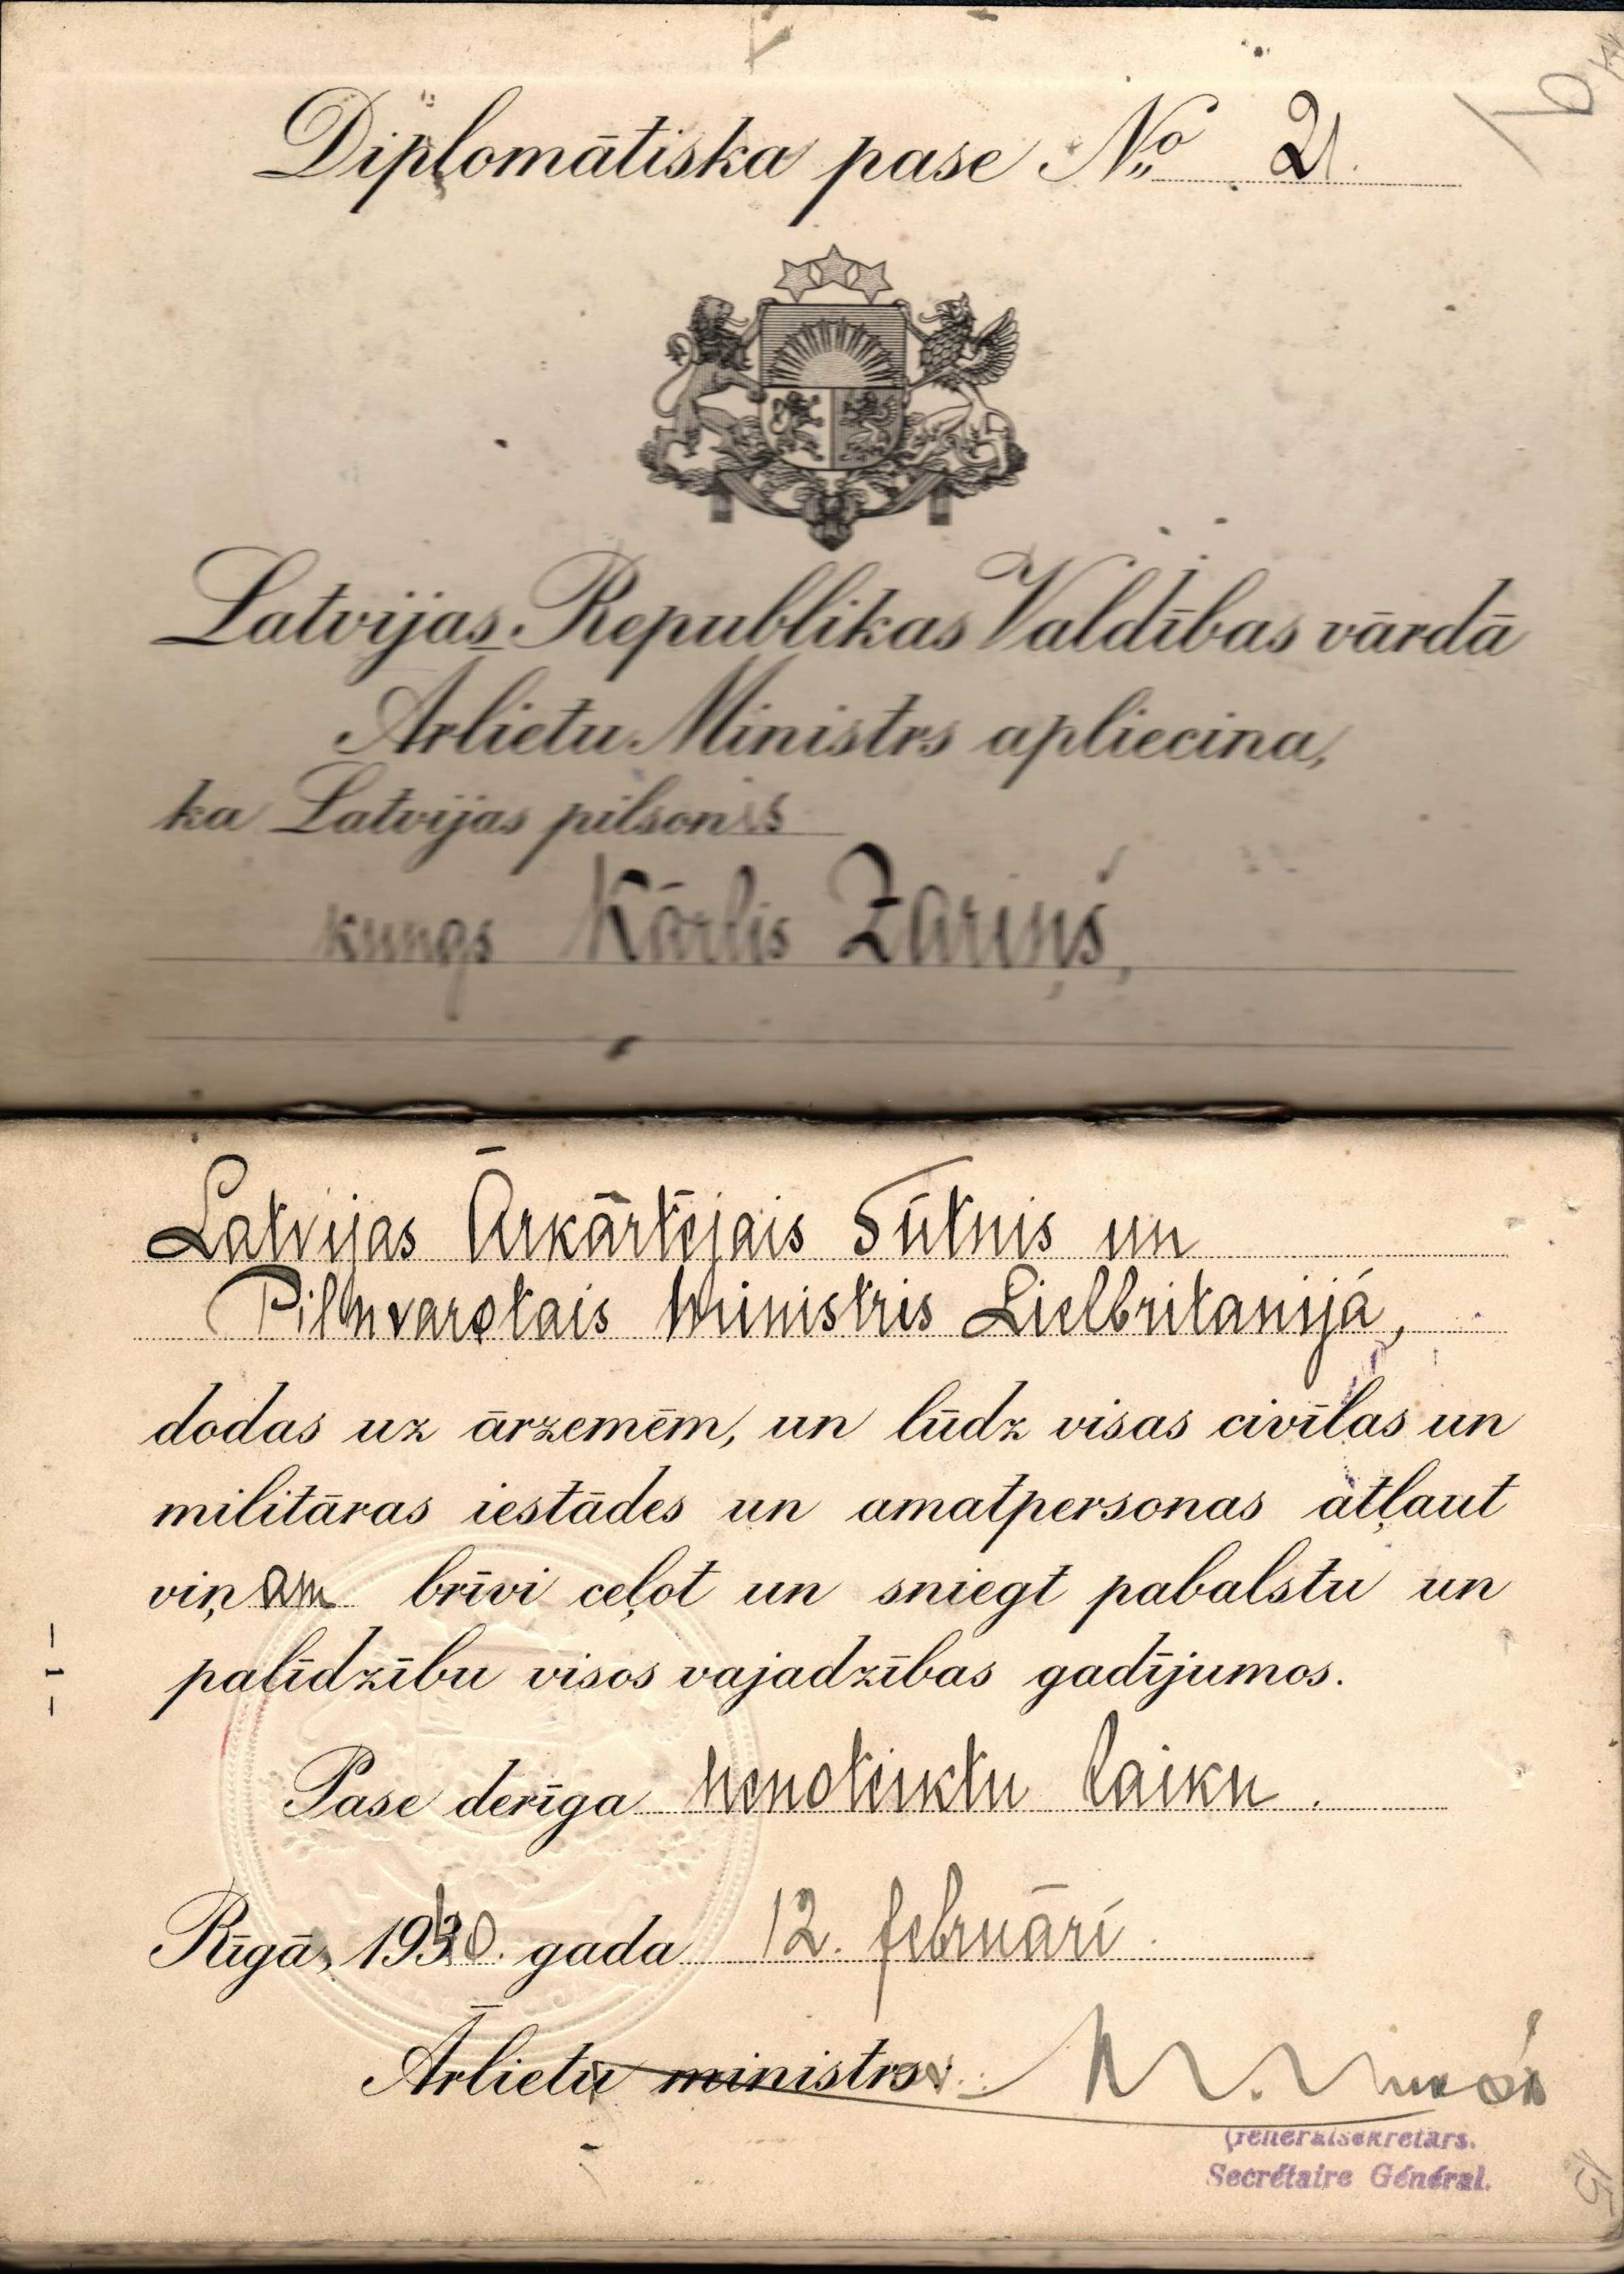 Diplomātiska pase № 21.
Latvijas Republikas Valdības vārdā
Ārlietu Ministrs apliecina,
ka Latvijas pilsonis
kungs Kārlis Zariņš,
Latvijas Ārkārtējais Sūtnis un
Pilnvarotais Ministris Lielbritanijā,
dodas uz ārzemēm, un lūdz visas civīlas un
militāras iestādes un amatpersonas atļaut
viņam brīvi ceļot un sniegt pabalstu un
palīdzību visos vajadzības gadījumos.
– 1 –
Pase derīga nenoteiktu laiku.
Rīgā, 1940. gada 12. februārī.
Ārlietu ministrs
Ģenerālsekretārs.
Secrétaire Général.
15